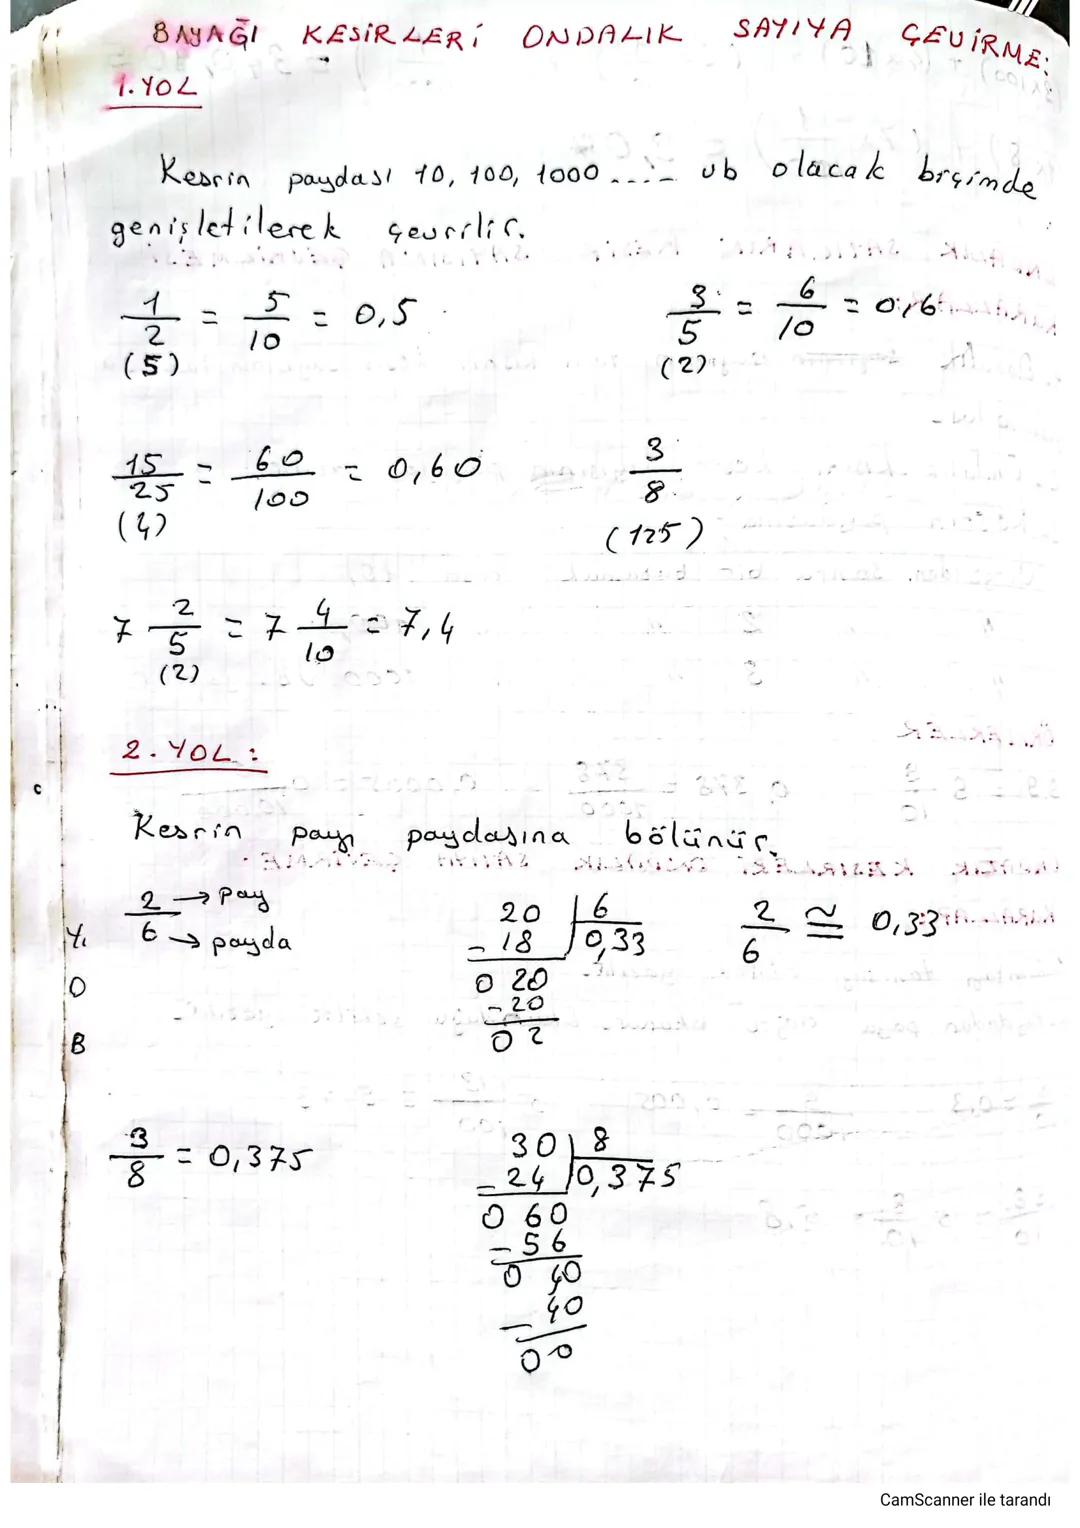 BAYAĞI KESİRLERİ ONDALIK SAYIYA ÇEVİRME:
1.YOL
Kesrin paydası 10, 100, 1000 ..... vb olacak biçimde
genişletilerek çevrilir.
1/2 (5) = 5/10 = 0,5
3/5 (2) = 6/10 = 0,6
15/25 (4) = 60/100 = 0,60
3/8 (125)
7 2/5 (2) = 7 4/10 = 7,4
2.YOL:
Kesrin payı paydasına bölünür.
2 → pay
6 → payda
20 | 6
- 18 0,33
0 20
- 20
0 2
2/6 ≅ 0,33
Y.
O
B
3/8 = 0,375
30 | 8
- 24 0,375
0 60
- 56
0 40
- 40
00
CamScanner ile tarandı